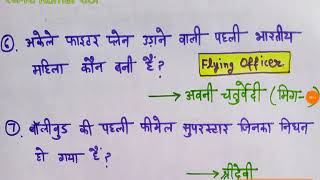 ⑥. अकेले फाइटर प्लेन उड़ाने वाली पहली भारतीय
महिला कौन बनी हैं?
Flying Officer
→ अवनी चतुर्वेदी (मिग-
⑦. बॉलीवुड की पहली फीमेल सुपरस्टार जिनका निधन
हो गया हैं?
→ श्रीदेवी